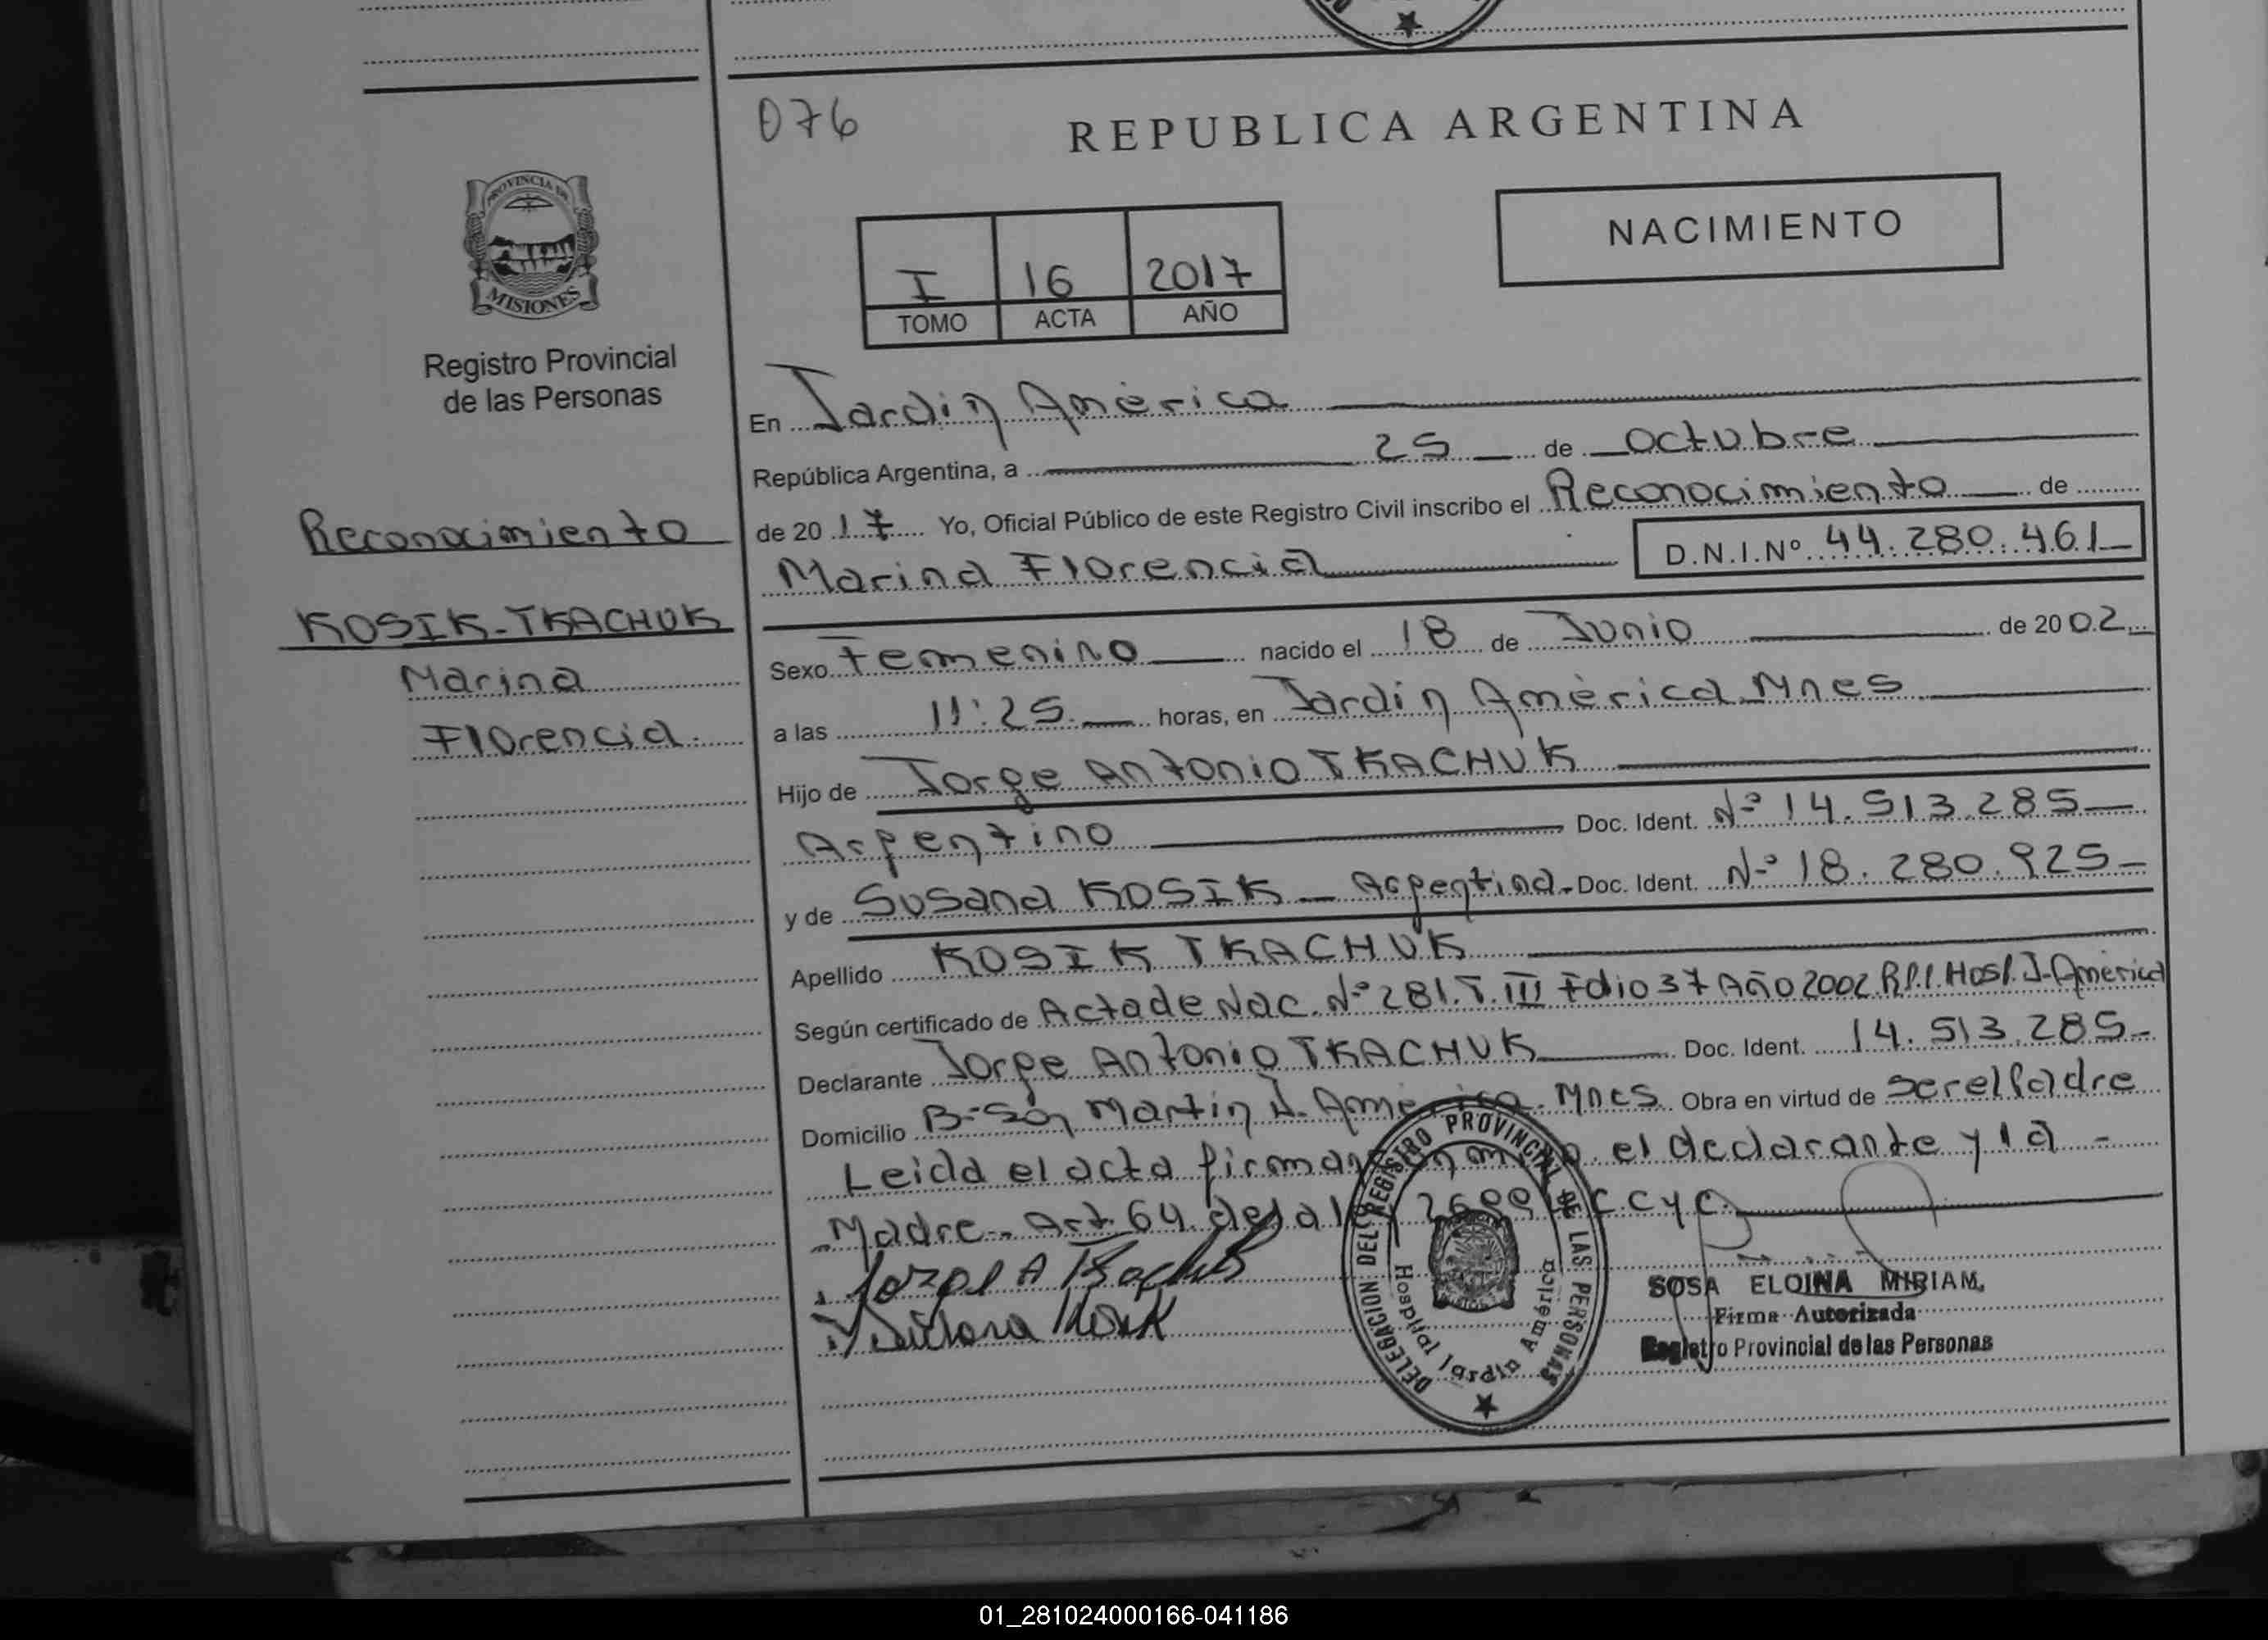 076
REPUBLICA ARGENTINA
PROVINCIA DE
MISIONES
Registro Provincial
de las Personas
NACIMIENTO
I 16 2017
TOMO ACTA AÑO
Reconocimiento
KOSIK-TKACHUK
Marina
Florencia
En Jardin América
República Argentina, a 25 de octubre
de 2017 Yo, Oficial Público de este Registro Civil inscribo el Reconocimiento de
Marina Florencia D.N.I.Nº 44.280.461
Sexo Femenino nacido el 18 de Junio de 2002
a las 11:25 horas, en Jardin América Mnes
Hijo de Jorge Antonio TKACHUK
Argentino Doc. Ident. Nº 14.513.285
y de Susana KOSIK - Argentina - Doc. Ident. Nº 18.280.925
Apellido KOSIK TKACHUK
Según certificado de Acta de Nac. Nº 281. T. III Folio 37 Año 2002 R.P.P. Hosp. J. América
Declarante Jorge Antonio TKACHUK Doc. Ident. 14.513.285
Domicilio Bº San Martin J. América. Mnes Obra en virtud de ser el padre
Leida el acta firman el declarante y la
Madre - Art. 64 CCyC
SOSA ELOINA MIRIAM
Firma Autorizada
Registro Provincial de las Personas
DELEGACION DEL REGISTRO PROVINCIAL DE LAS PERSONAS
Hospital Jardín América
01_281024000166-041186